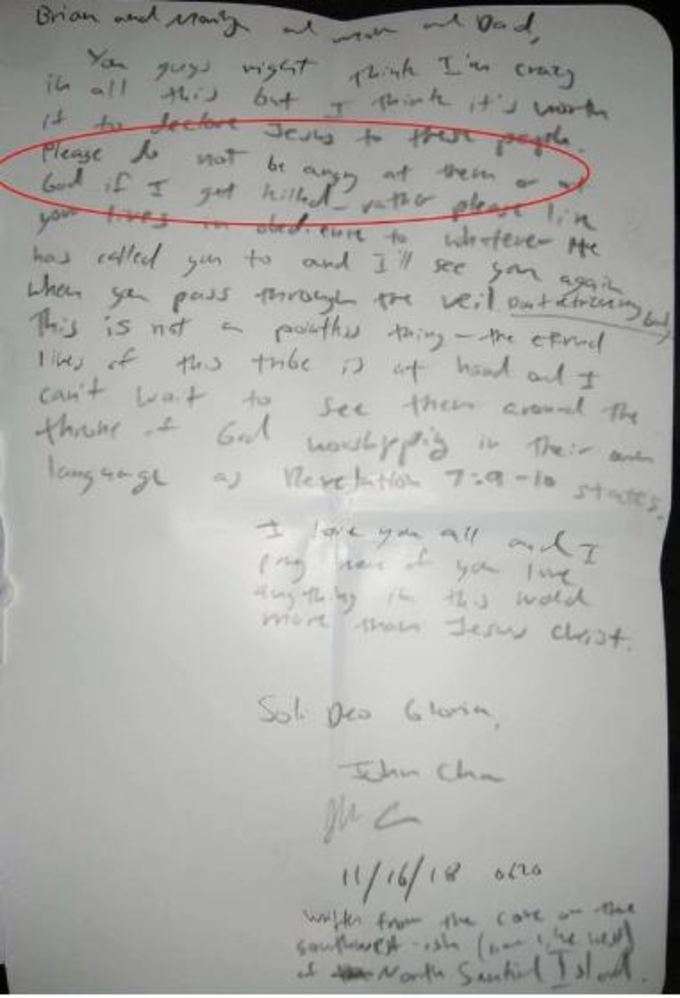 Brian and Marilyn and mom and Dad,
You guys might think I'm crazy
in all this but I think it's worth
it to declare Jesus to these people.
Please do not be angry at them or at
God if I get killed - rather please live
your lives in obedience to whatever He
has called you to and I'll see you again
when you pass through the veil
This is not a pointless thing - the eternal
lives of this tribe is at hand and I
can't wait to see them around the
throne of God worshipping in their own
language as Revelation 7:9-10 states.
I love you all and I
pray none of you love
anything in this world
more than Jesus Christ.
Soli Deo Gloria,
John Chau
11/16/18 0620
written from the cove on the
southwest
of North Sentinel Island.